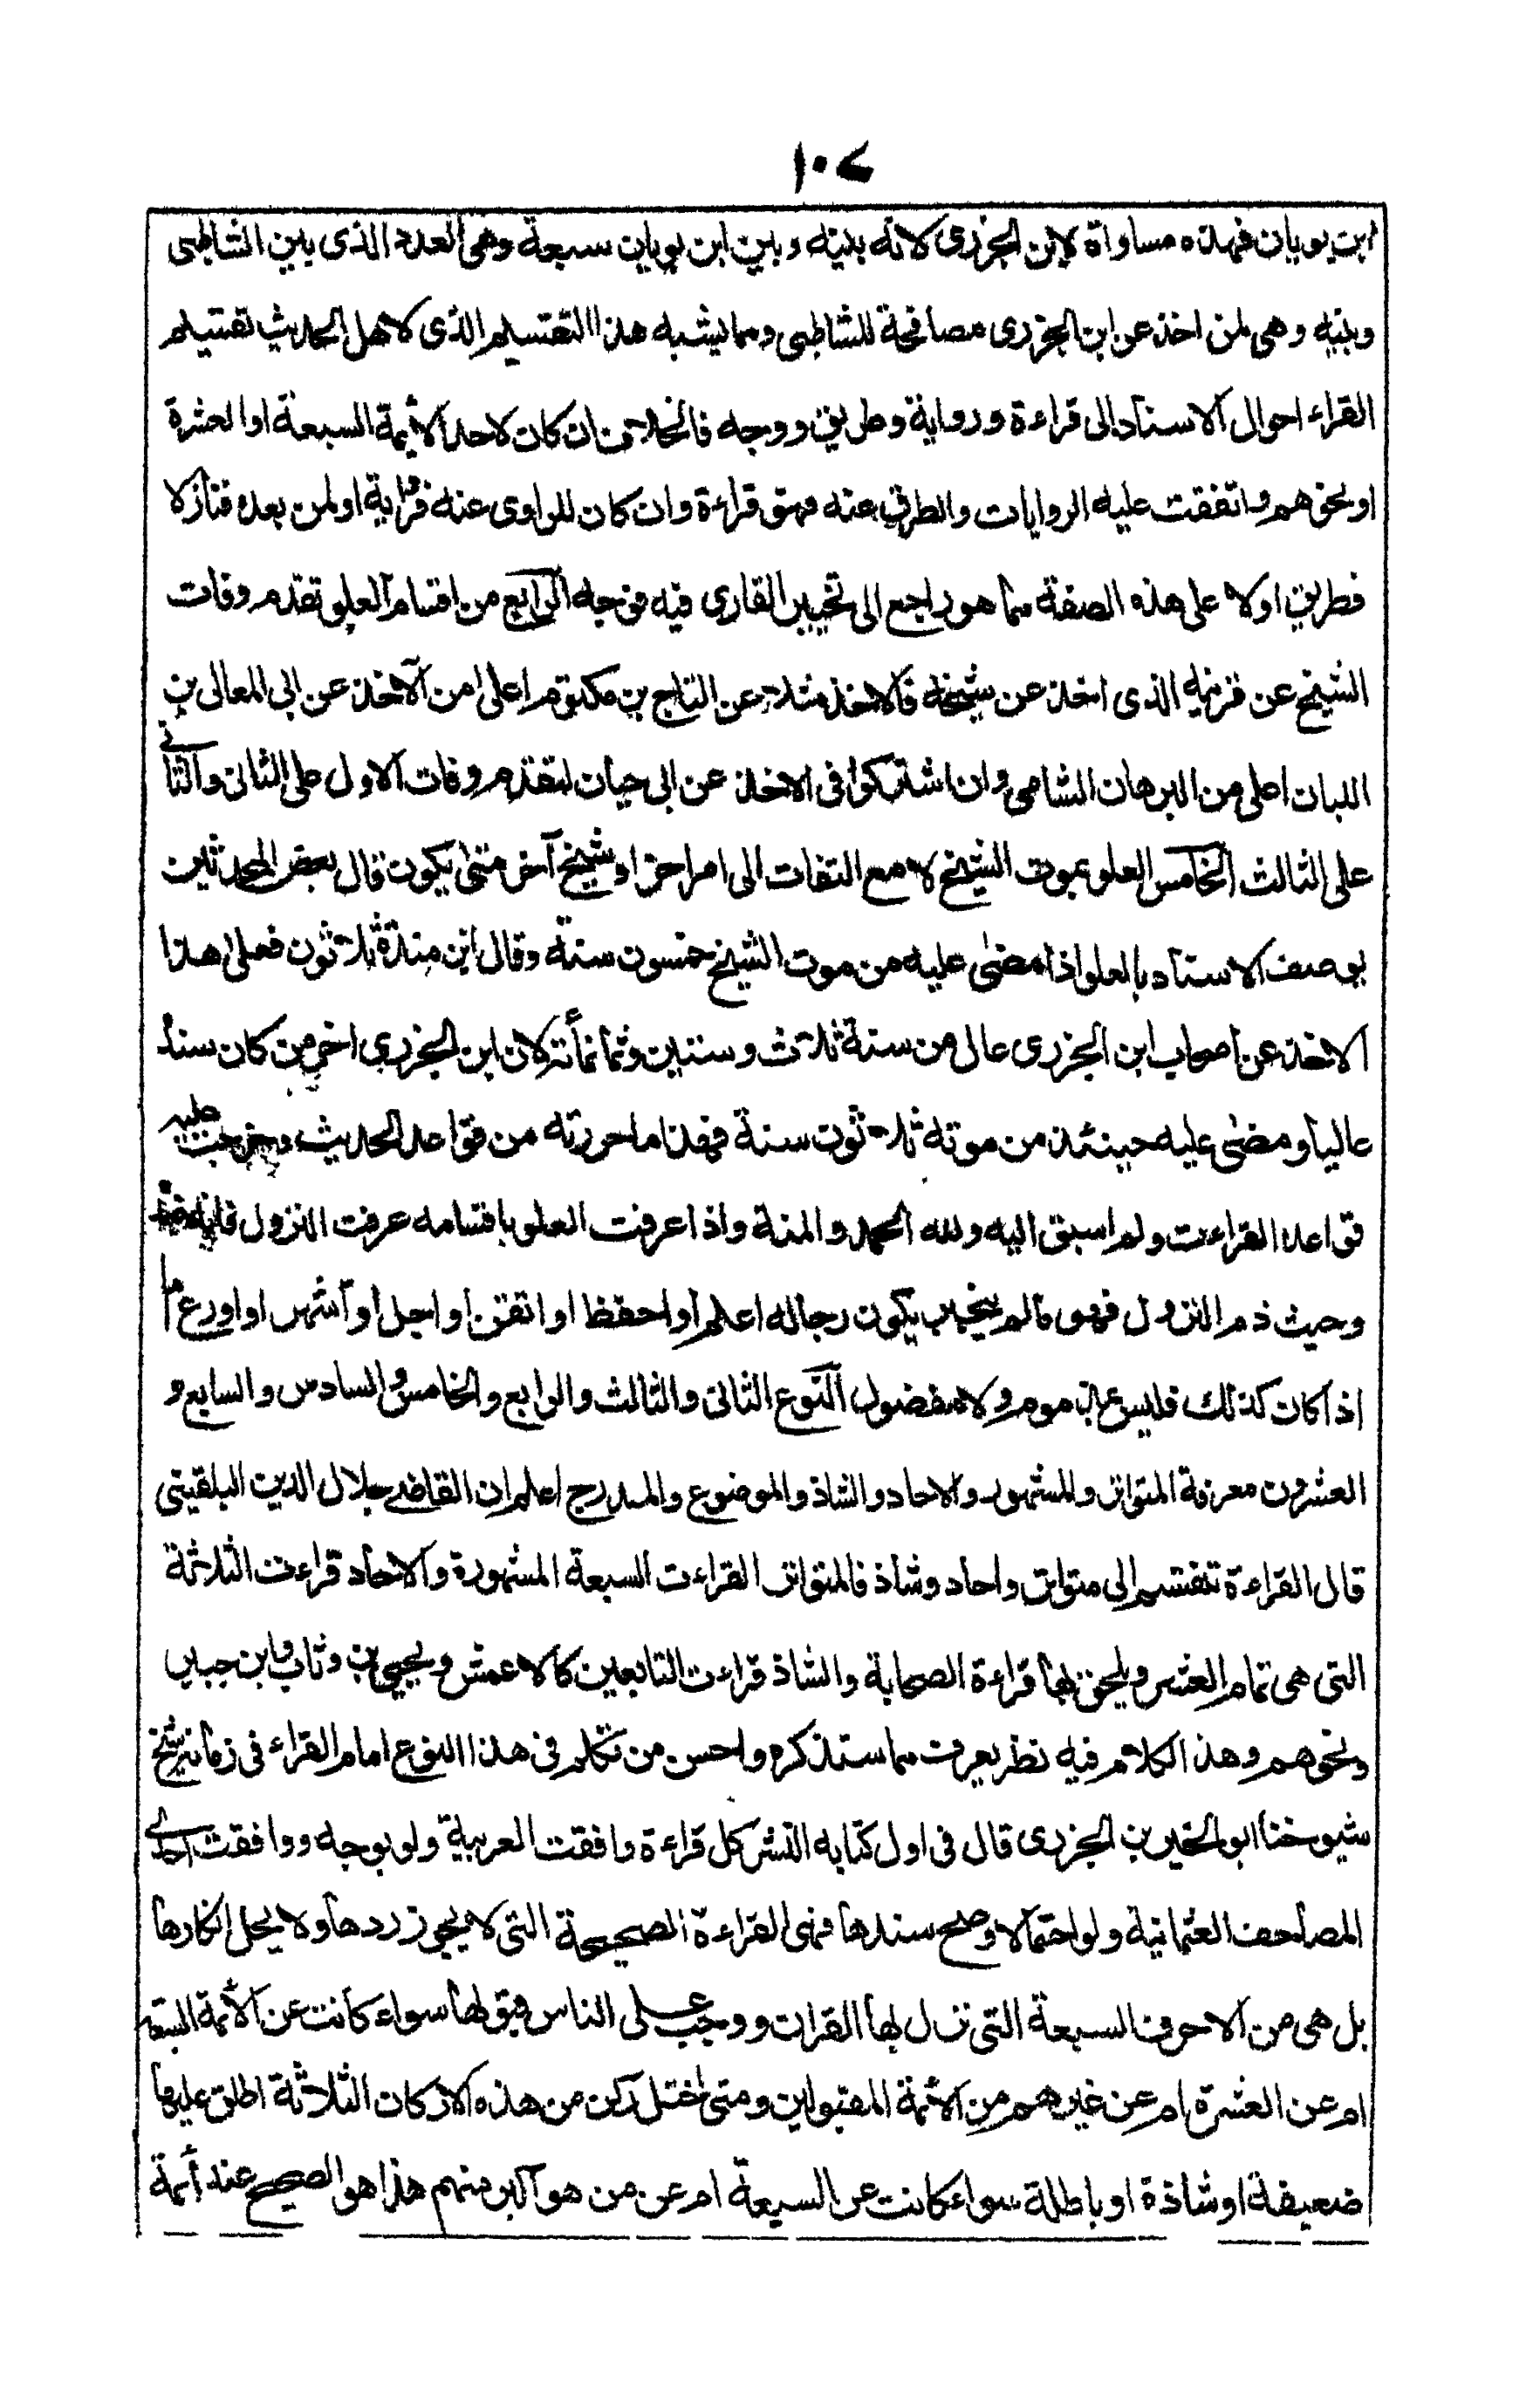 ١٠٧
ابن بويان فهذه مساواة لابن الجزرى لانه بينه وبين ابن بويان سبعة وهى العدد الذى بين الشاطبى
وبينه وهى لمن اخذ عن ابن الجزرى مصافحة للشاطبى ومما يشبه هذا التقسيم الذى لاهل الحديث تقسيم
القراء احوال الاسناد الى قراءة ورواية وطريق ووجه فالخلاف ان كان لاحد الأئمة السبعة او العشرة
او نحوهم واتفقت عليه الروايات والطرق عنه فهو قراءة وان كان للراوى عنه فرواية او لمن بعده فنازلا
فطريق اولا على هذه الصفة مما هو راجع الى تخيير القارى فيه فوجه الرابع من اقسام العلو تقدم وفات
الشيخ عن قرينه الذى اخذ عن شيخه فالاخذ مثلا عن التاج بن مكتوم اعلى من الآخذ عن ابى المعالى بن
اللبان اعلى من البرهان الشامى وان اشتركوا فى الاخذ عن ابى حيان لتقدم وفات الاول على الثانى والثانى
على الثالث الخامس العلو بموت الشيخ لا مع التفات الى امر اخر او شيخ آخر متى يكون قال بعض المحدثين
يوصف الاسناد بالعلو اذا مضى عليه من موت الشيخ خمسون سنة وقال ابن مندة ثلاثون فعلى هذا
الاخذ عن اصحاب ابن الجزرى عال من سنة ثلاث وستين وثمانمأئة لان ابن الجزرى اخر من كان سنده
عاليا ومضى عليه حينئذ من موته ثلاثون سنة فهذا ما حررته من قواعد الحديث وخرجت عليه
قواعد القراءت ولم اسبق اليه ولله الحمد والمنة واذا عرفت العلو باقسامه عرفت النزول فانه ضده
وحيث ذم النزول فهو مالم ينجبر بكون رجاله اعلم او احفظ او اتقن او اجل او اشهر او اورع اما
اذا كان كذلك فليس بمذموم ولا مفضول النوع الثانى والثالث والرابع والخامس والسادس والسابع و
العشرون معرفة المتواتر والمشهور والاحاد والشاذ والموضوع والمدرج اعلم ان القاضى جلال الدين البلقينى
قال القراءة تنقسم الى متواتر واحاد وشاذ فالمتواتر القراءت السبعة المشهورة والاحاد قراءت الثلاثة
التى هى تمام العشر ويلحق بها قراءة الصحابة والشاذ قراءت التابعين كالاعمش ويحيى بن وثاب وابن جبير
ونحوهم وهذا الكلام فيه نظر يعرف مما سنذكره واحسن من تكلم فى هذا النوع امام القراء فى زمانه شيخ
شيوخنا ابو الخير بن الجزرى قال فى اول كتابه النشر كل قراءة وافقت العربية ولو بوجه ووافقت احدى
المصاحف العثمانية ولو احتمالا وصح سندها فهى القراءة الصحيحة التى لا يجوز ردها ولا يحل انكارها
بل هى من الاحرف السبعة التى نزل بها القران ووجب على الناس قبولها سواء كانت عن الأئمة السبعة
ام عن العشرة ام عن غيرهم من الأئمة المقبولين ومتى اختل ركن من هذه الاركان الثلاثة اطلق عليها
ضعيفة او شاذة او باطلة سواء كانت عن السبعة ام عن من هو اكبر منهم هذا هو الصحيح عند أئمة